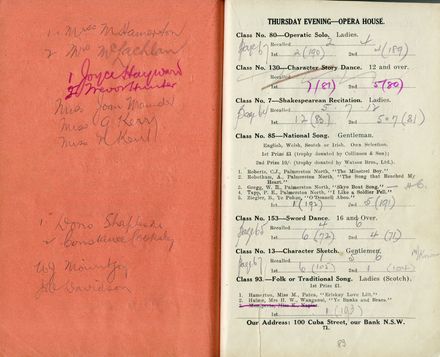 1. Miss M Hamerton
2 Mrs McLachlan
1 Joyce Hayward
2 Trevor Hunter
Miss Joan
Miss G Kerr
Miss
1
2 Constance
W J Mountjoy
Davidson
THURSDAY EVENING—OPERA HOUSE.
Class No. 80—Operatic Solo. Ladies.
Recalled 2 4
1st 2 (190) 2nd 4 (189)
Class No. 130—Character Story Dance. 12 and over.
1st 7 (81) 2nd 5 (80)
Class No. 7—Shakespearean Recitation. Ladies.
Recalled 5 7 12
1st 12 (83) 2nd 5 & 7 (81)
Class No. 85—National Song. Gentleman.
English, Welsh, Scotch or Irish. Own Selection.
1st Prize £1 (trophy donated by Collinson & Son);
2nd Prize 10/- (trophy donated by Watson Bros., Ltd.).
1. Roberts, C.J., Palmerston North, "The Minstrel Boy."
2. Robotham, A., Palmerston North, "The Song that Reached My
Heart."
3. Gregg, W. B., Palmerston North, "Skye Boat Song."
4. Tapp, P. E., Palmerston North, "I Like a Soldier Fell."
5. Ziegler, B., Te Pohue, "O'Donnell Aboo."
1st 1 (192) 2nd 5 (191)
Class No. 153—Sword Dance. 16 and Over.
Recalled 4 6
1st 6 (72) 2nd 4 (71)
Class No. 13—Character Sketch. Gentlemen.
Recalled 1 6
1st 6 (102) 2nd 1
Class 93.—Folk or Traditional Song. Ladies (Scotch).
1st Prize £1.
1. Hamerton, Miss M., Patea, "Eriskay Love Lilt."
2. Hulme, Mrs H. W., Wanganui, "Ye Banks and Braes."
1 (193)
Our Address: 100 Cuba Street, our Bank N.S.W.
71.
83